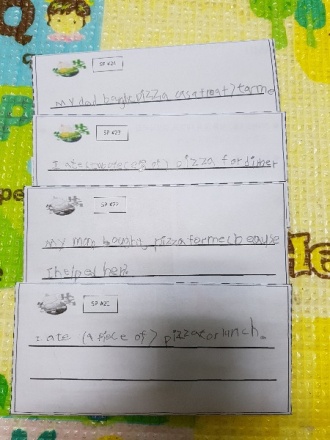 SP #21
my dad bought pizza as a treat) for me
SP #23
I ate (a piece of) pizza for dinner
my mam bought pizza for me because
I helped her.
SP #25
I ate (a piece of) pizza for lunch.